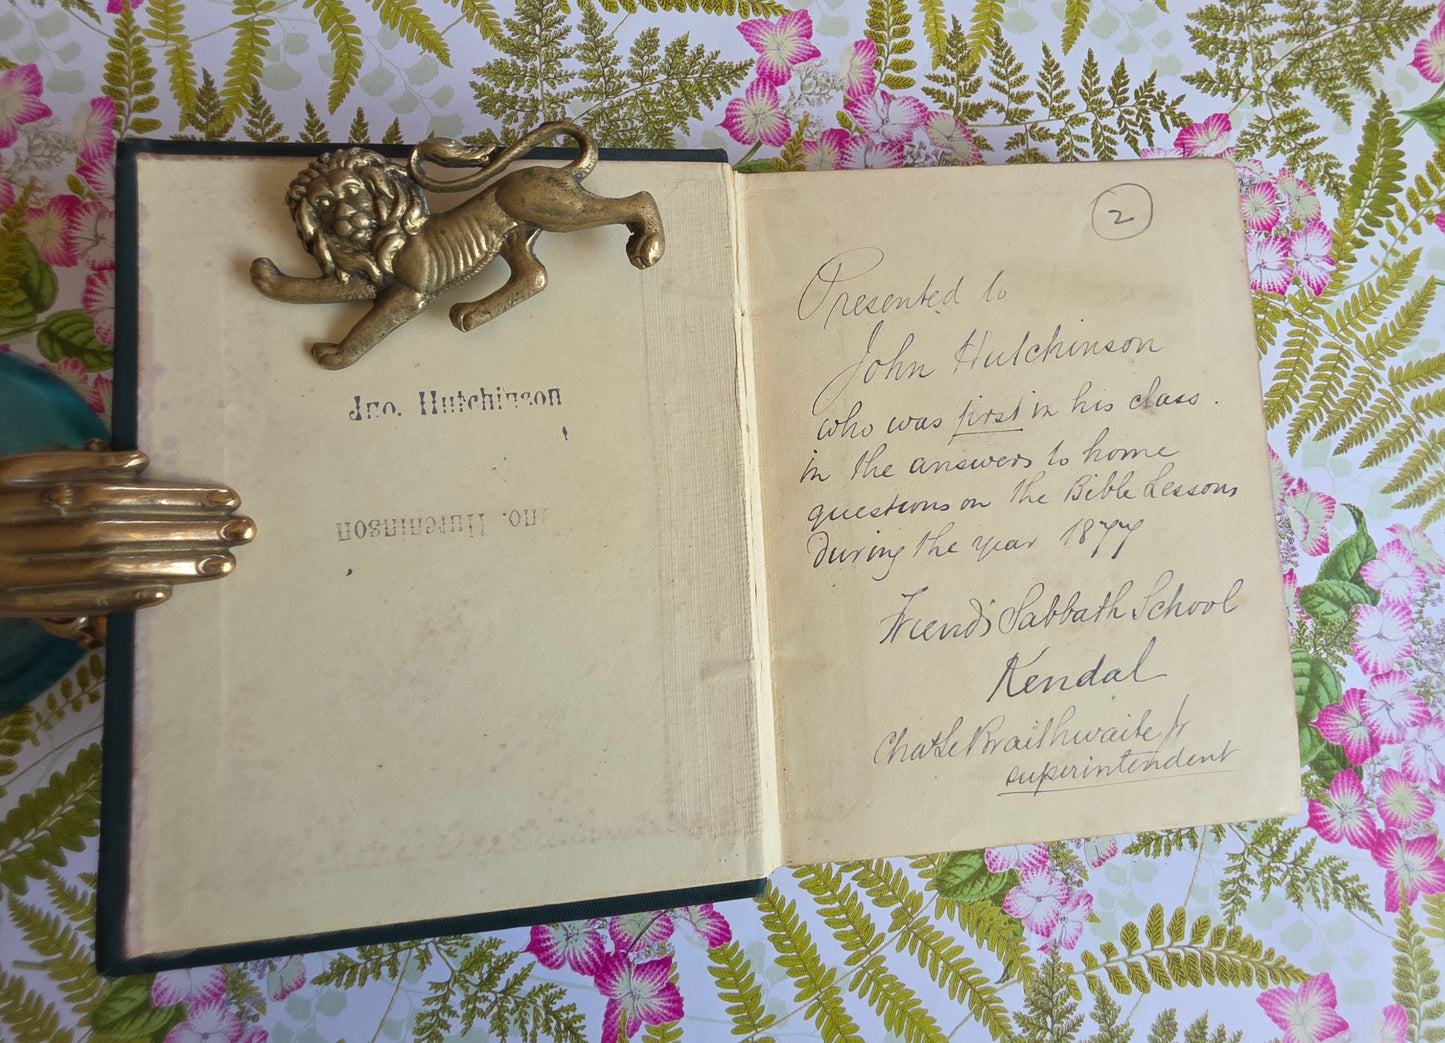 Jno. Hutchinson
Jno. Hutchinson
2
Presented to
John Hutchinson
who was first in his class.
in the answers to home
questions on the Bible Lessons
During the year 1877
Friends Sabbath School
Kendal
Braithwaite Jr
superintendent